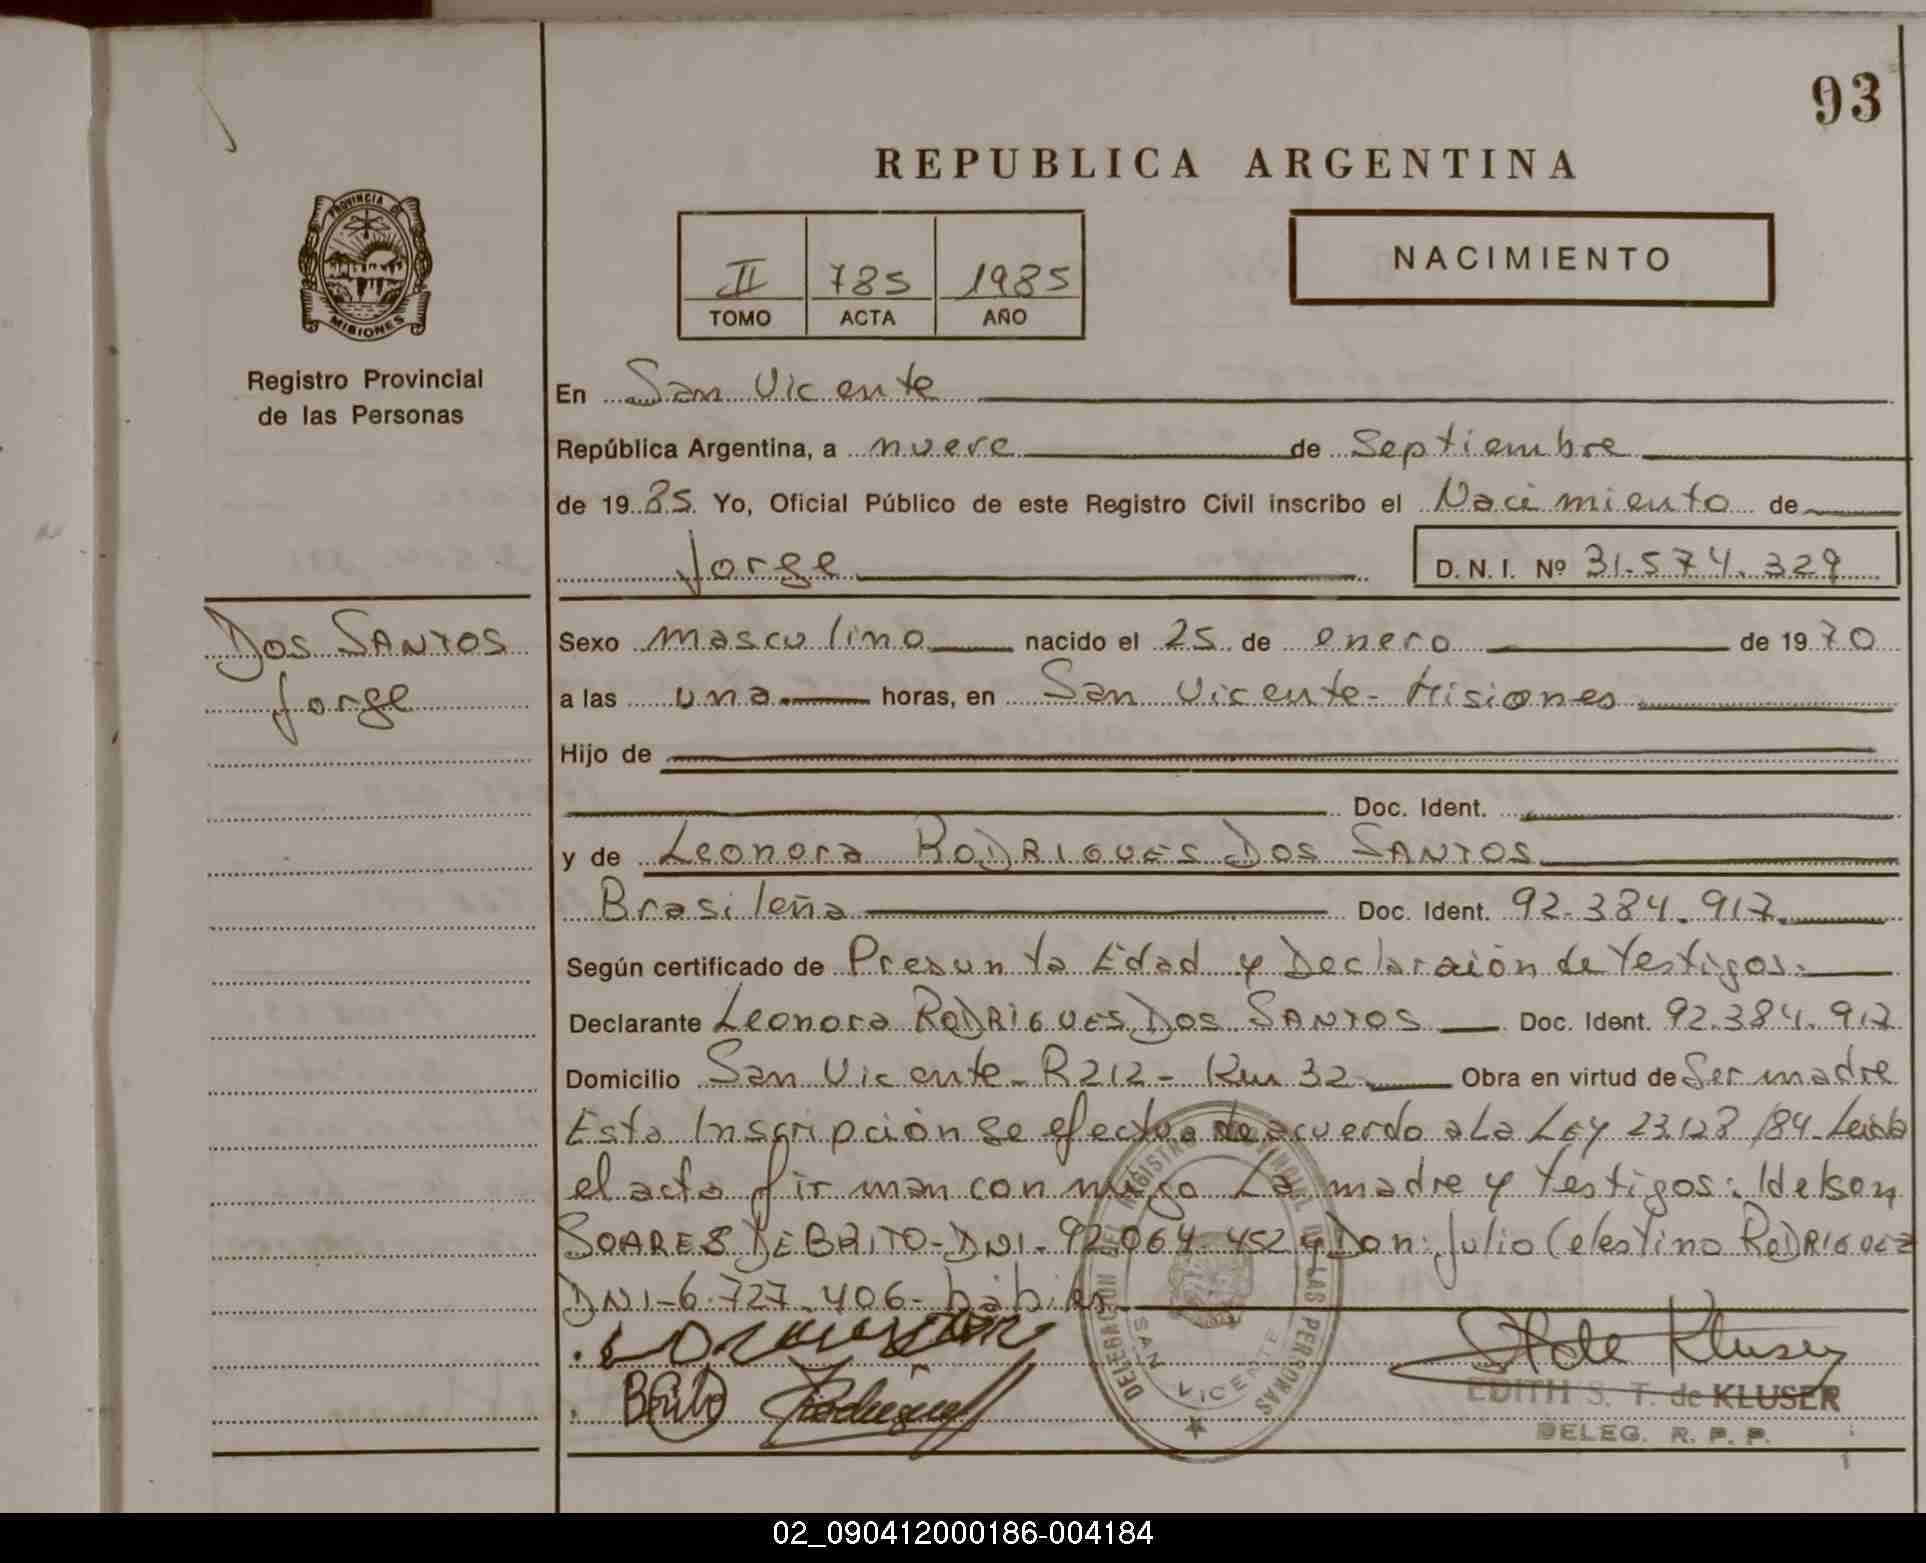 93
REPUBLICA ARGENTINA
II 785 1985
TOMO ACTA AÑO
NACIMIENTO
PROVINCIA DE
MISIONES
Registro Provincial
de las Personas
En San Vicente
República Argentina, a nueve de Septiembre
de 1985 Yo, Oficial Público de este Registro Civil inscribo el Nacimiento de
Jorge D. N. I. Nº 31.574.329
DOS SANTOS
Jorge
Sexo masculino nacido el 25 de enero de 1970
a las una horas, en San Vicente - Misiones
Hijo de
Doc. Ident.
y de Leonora RODRIGUES DOS SANTOS
Brasileña Doc. Ident. 92.384.917
Según certificado de Presunta Edad y Declaraión de Testigos.
Declarante Leonora RODRIGUES DOS SANTOS Doc. Ident. 92.384.917
Domicilio San Vicente - R212 - Km 32 Obra en virtud de Ser madre
Esta Inscripción se efectua de acuerdo a La Ley 23.128/84. Leida
el acta firman conmigo La madre y Testigos: Idelson
SOARES DE BRITO - DNI - 92.064.452 y Don: Julio Celestino RODRIGUEZ
DNI - 6.727.406 - hábiles
Brito Rodriguez
DELEGACION DEL REGISTRO PROVINCIAL DE LAS PERSONAS
SAN VICENTE
St de Kluser
EDITH S. T. de KLUSER
DELEG. R. P. P.
02_090412000186-004184